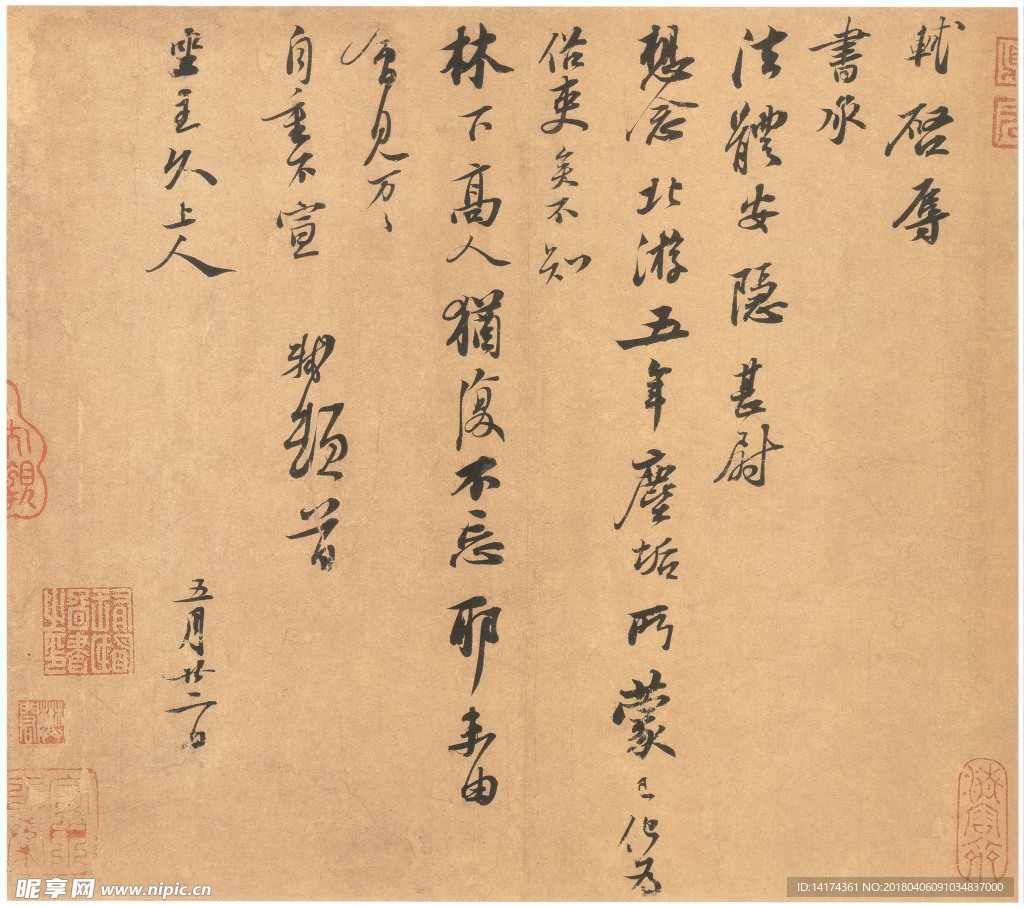 軾啓辱
書承
法體安隱甚尉
想念北游五年塵垢所蒙已化為
俗吏矣不知
林下高人猶復不忘耶未由
會見万〻
自重不宣 軾頓首
坐主久上人
五月廿二日
昵享网 www.nipic.cn
ID:14174361 NO:20180406091034837000